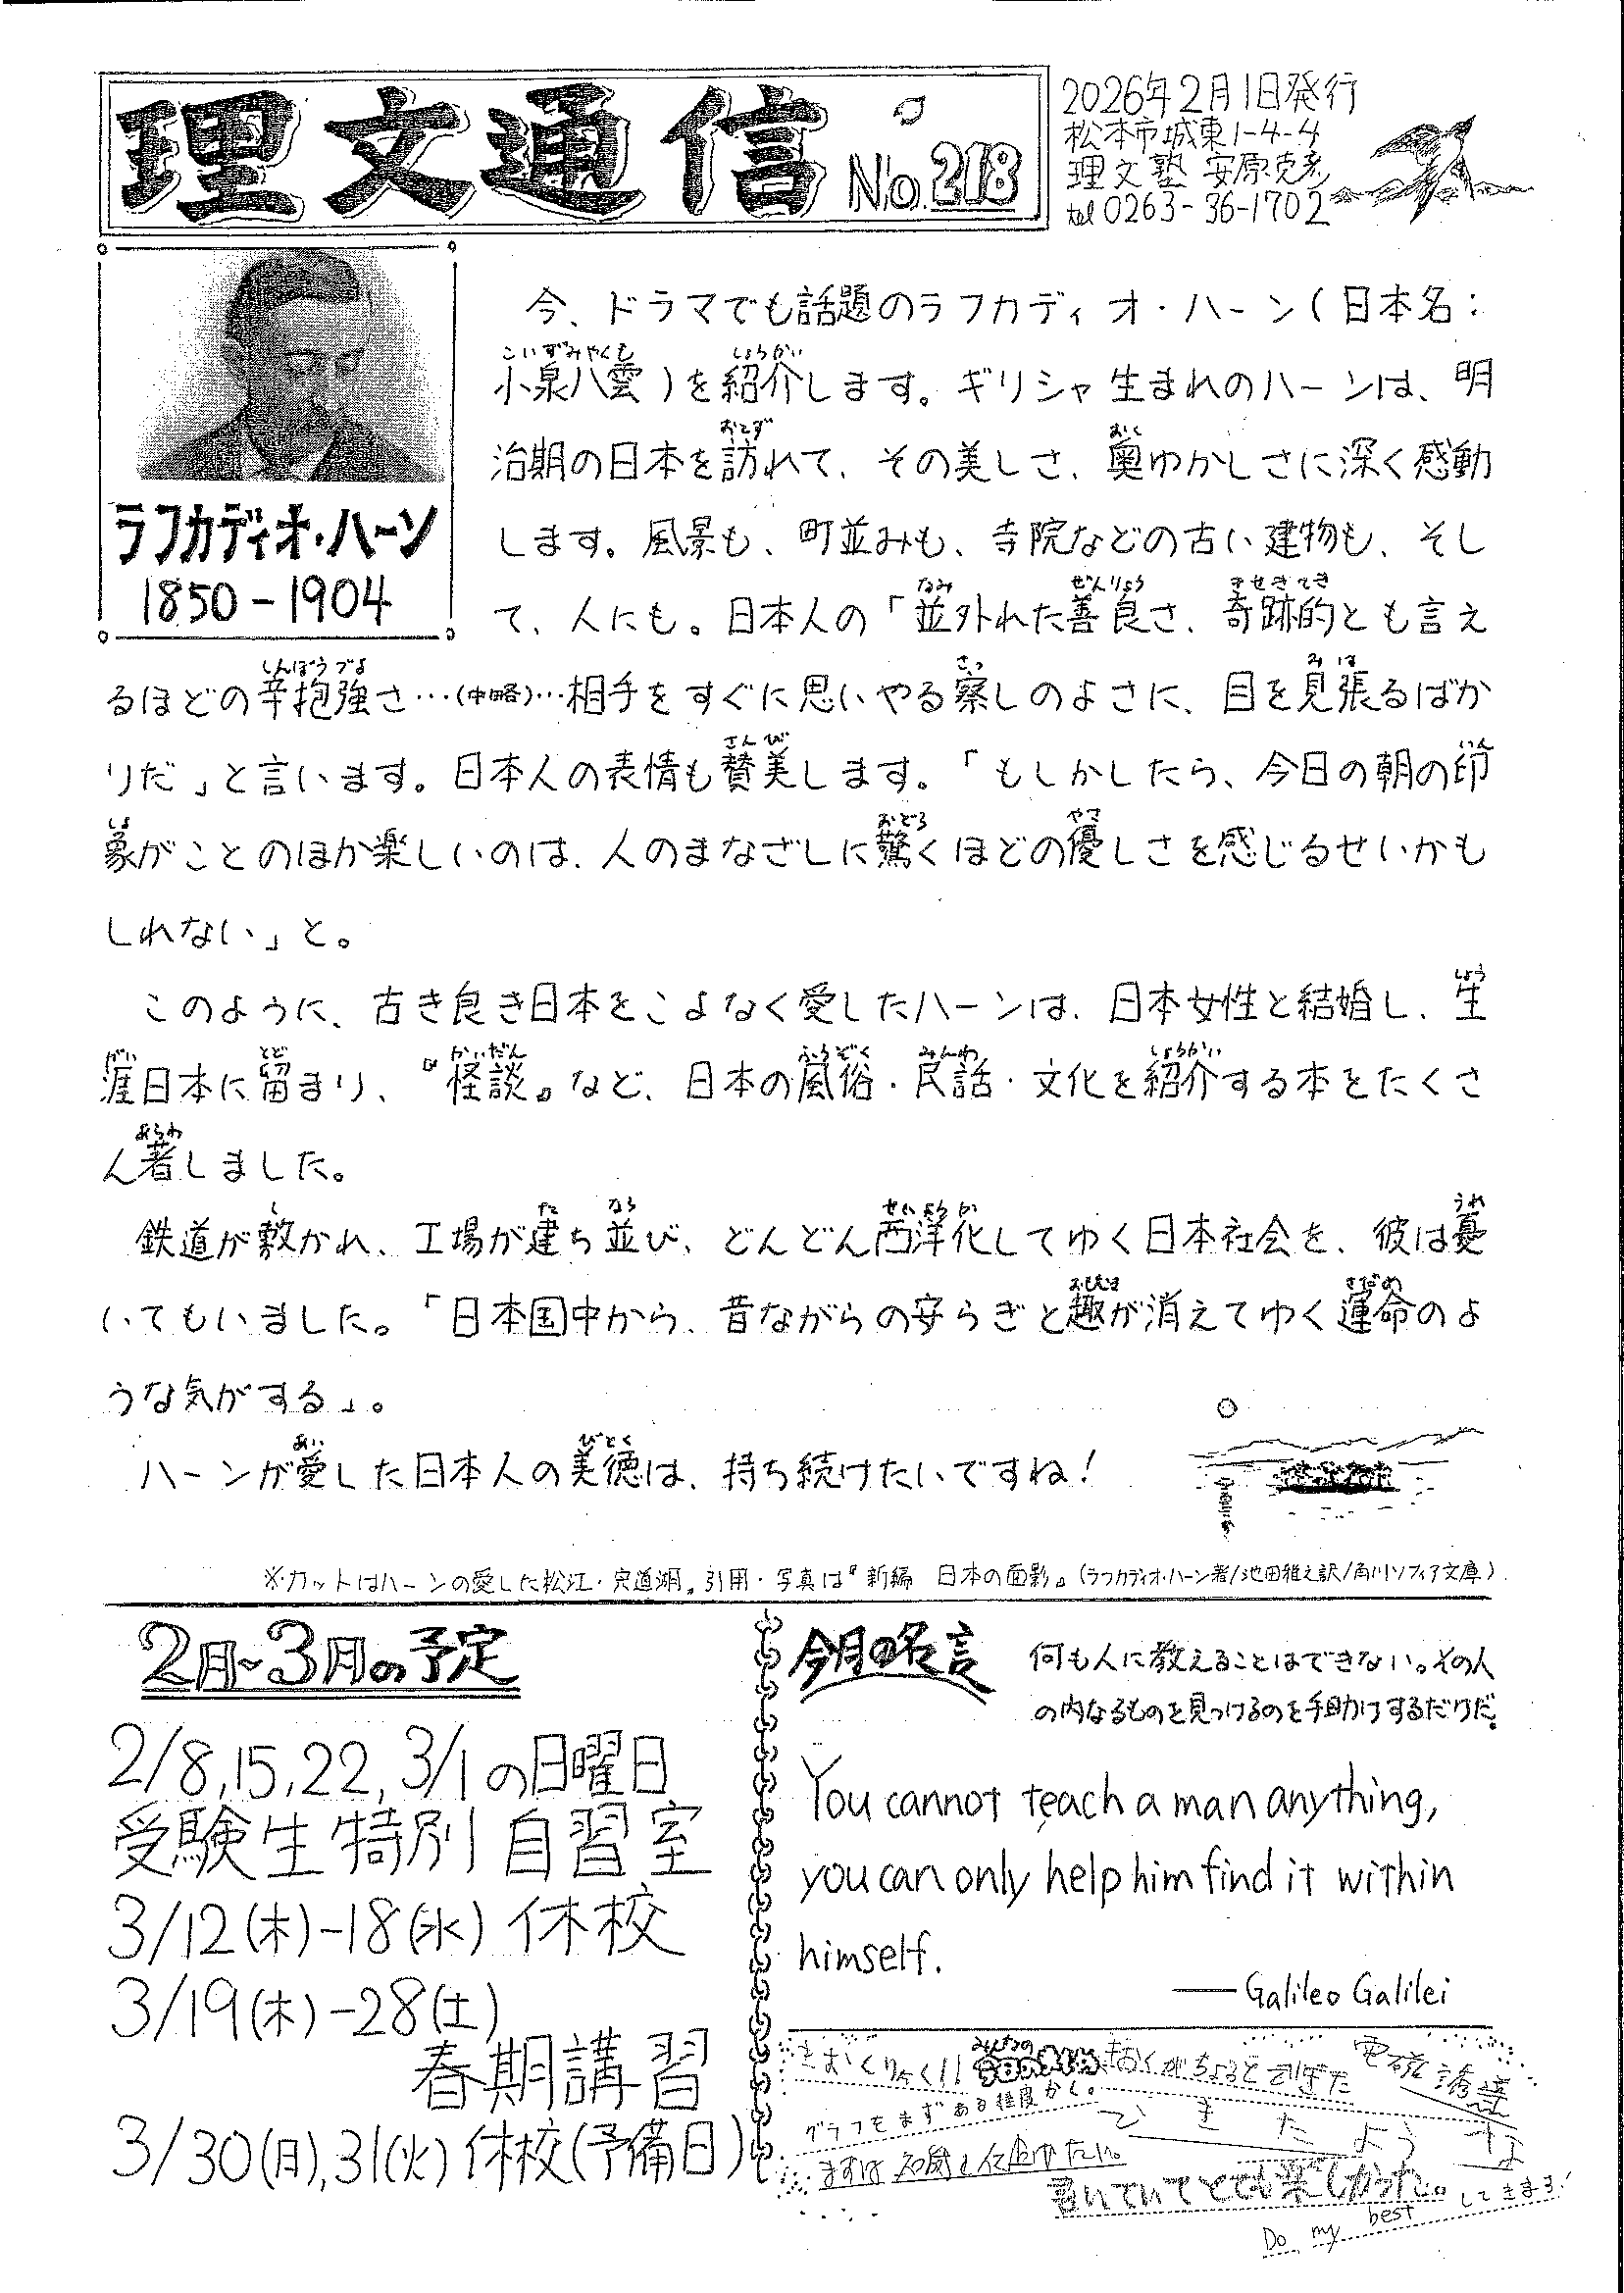 理文通信 No.218
2026年2月1日発行
松本市城東1-4-4
理文塾 安原克彦
tel 0263-36-1702
ラフカディオ・ハーン
1850-1904
今、ドラマでも話題のラフカディオ・ハーン(日本名:
小泉八雲)を紹介します。ギリシャ生まれのハーンは、明
治期の日本を訪れて、その美しさ、奥ゆかしさに深く感動
します。風景も、町並みも、寺院などの古い建物も、そし
て、人にも。日本人の「並外れた善良さ、奇跡的とも言え
るほどの辛抱強さ…(中略)…相手をすぐに思いやる察しのよさに、目を見張るばか
りだ」と言います。日本人の表情も賛美します。「もしかしたら、今日の朝の印
象がことのほか楽しいのは、人のまなざしに驚くほどの優しさを感じるせいかも
しれない」と。
このように、古き良き日本をこよなく愛したハーンは、日本女性と結婚し、生
涯日本に留まり、『怪談』など、日本の風俗・民話・文化を紹介する本をたくさ
ん著しました。
鉄道が敷かれ、工場が建ち並び、どんどん西洋化してゆく日本社会を、彼は憂
いてもいました。「日本国中から、昔ながらの安らぎと趣が消えてゆく運命のよ
うな気がする」。
ハーンが愛した日本人の美徳は、持ち続けたいですね!
※カットはハーンの愛した松江・宍道湖。引用・写真は『新編 日本の面影』(ラフカディオ・ハーン著/池田雅之訳/角川ソフィア文庫)
2月~3月の予定
2/8,15,22,3/1の日曜日
受験生特別自習室
3/12(木)-18(水)休校
3/19(木)-28(土)
春期講習
3/30(月),31(火)休校(予備日)
今月の名言
何も人に教えることはできない。その人
の内なるものを見つけるのを手助けするだけだ。
You cannot teach a man anything,
you can only help him find it within
himself.
——Galileo Galilei
きおくりょく!!
みんなの
電磁誘導
グラフをまずある程度かく。
できたような
書いていてとても楽しかった。
Do my best してきます!